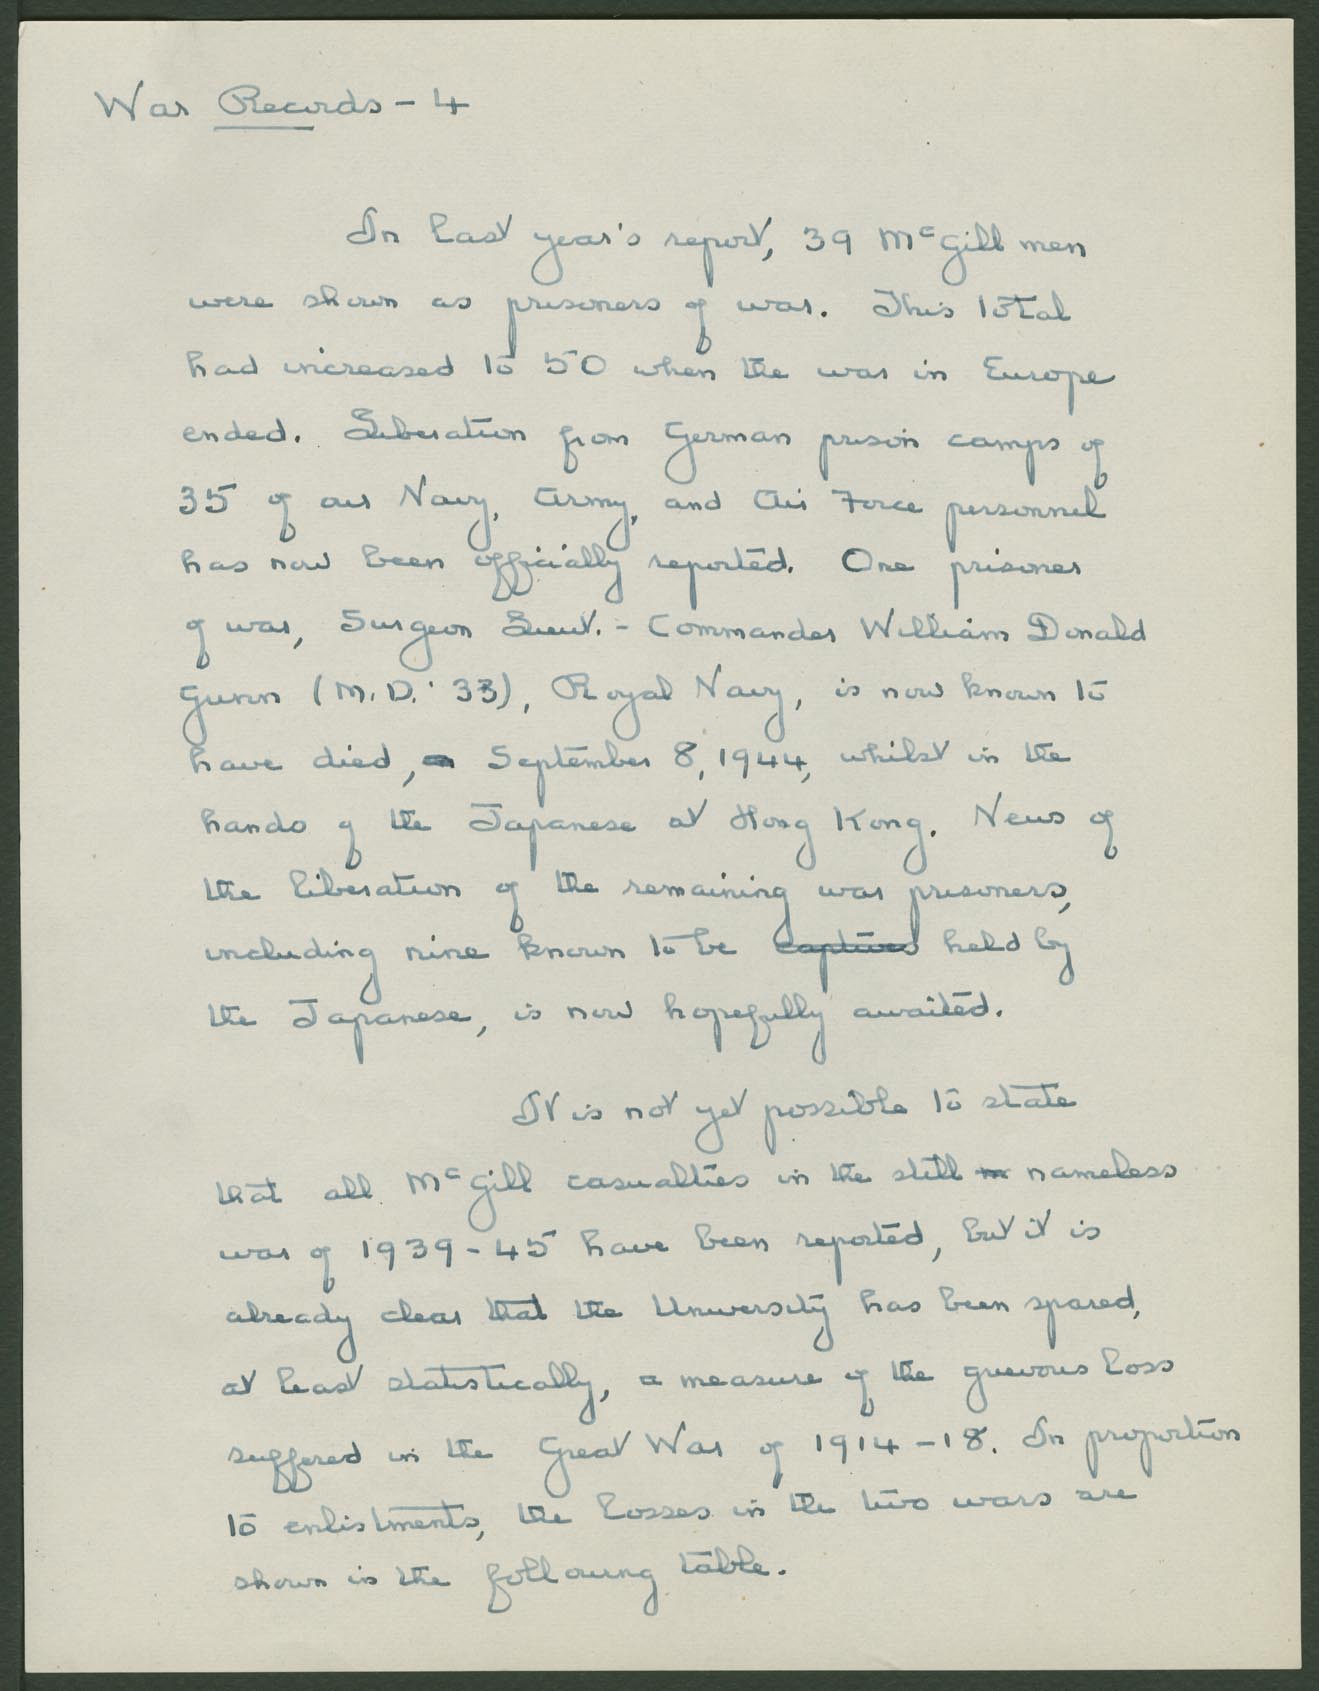 War Records - 4
In last year's report, 39 McGill men
were shown as prisoners of war. This total
had increased to 50 when the war in Europe
ended. Liberation from German prison camps of
35 of our Navy, Army, and Air Force personnel
has now been officially reported. One prisoner
of war, Surgeon Lieut.- Commander William Donald
Gunn (M.D. '33), Royal Navy, is now known to
have died, on September 8, 1944, whilst in the
hands of the Japanese at Hong Kong. News of
the liberation of the remaining war prisoners,
including nine known to be captives held by
the Japanese, is now hopefully awaited.
It is not yet possible to state
that all McGill casualties in the still nameless
war of 1939-45 have been reported, but it is
already clear that the University has been spared,
at least statistically, a measure of the grievous loss
suffered in the Great War of 1914-18. In proportion
to enlistments, the losses in the two wars are
shown in the following table.